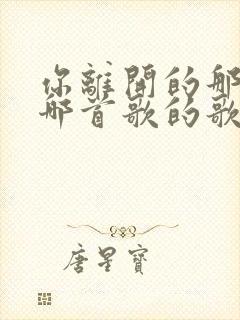 你離開的那
那首歌的歌
唐星寶